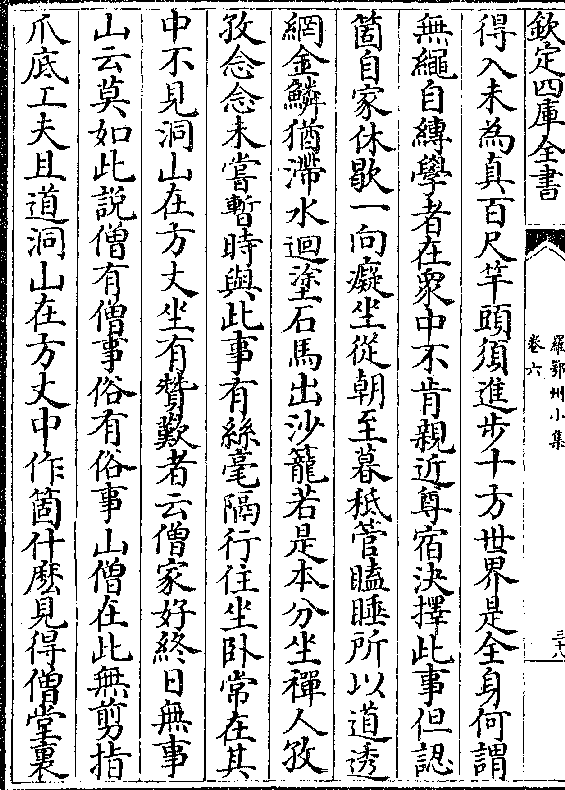 欽定四庫全書
羅鄂州小集
卷六
三十八
得入未為真百尺竿頭須進步十方世界是全身何謂
無繩自縛學者在衆中不肯親近尊宿決擇此事但認
箇自家休歇一向癡坐從朝至暮秪管瞌睡所以道透
網金鱗猶滯水迴塗石馬出沙籠若是本分坐禪人孜
孜念念未嘗暫時與此事有絲毫隔行住坐卧常在其
中不見洞山在方丈坐有贊歎者云僧家好終日無事
山云莫如此說僧有僧事俗有俗事山僧在此無剪指
爪底工夫且道洞山在方丈中作箇什麽見得僧堂裏